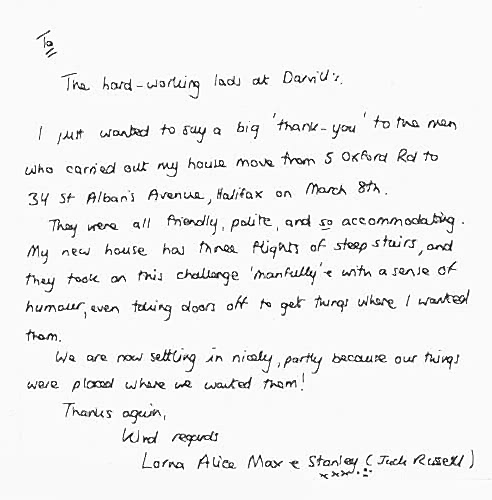 To
The hard-working lads at Darvill's.
I just wanted to say a big 'thank-you' to the men
who carried out my house move from 5 Oxford Rd to
34 St Alban's Avenue, Halifax on March 8th.
They were all friendly, polite, and so accommodating.
My new house has three flights of steep stairs, and
they took on this challenge 'manfully' & with a sense of
humour, even taking doors off to get things where I wanted
them.
We are now settling in nicely, partly because our things
were placed where we wanted them!
Thanks again,
Kind regards
Lorna Alice Max & Stanley (Jack Russell)
xxx